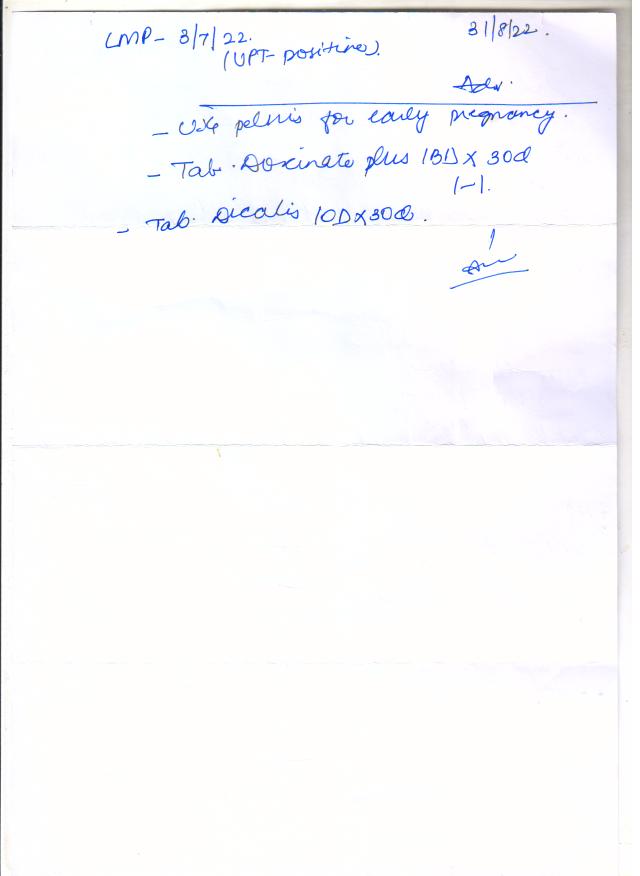 31/8/22.
LMP- 3/7/22.
(UPT- positive).
Adv.
- USG pelvis for early pregnancy.
- Tab. Doxinate plus 1BD x 30d
1-1.
- Tab. Dicalis 1OD x 30d.